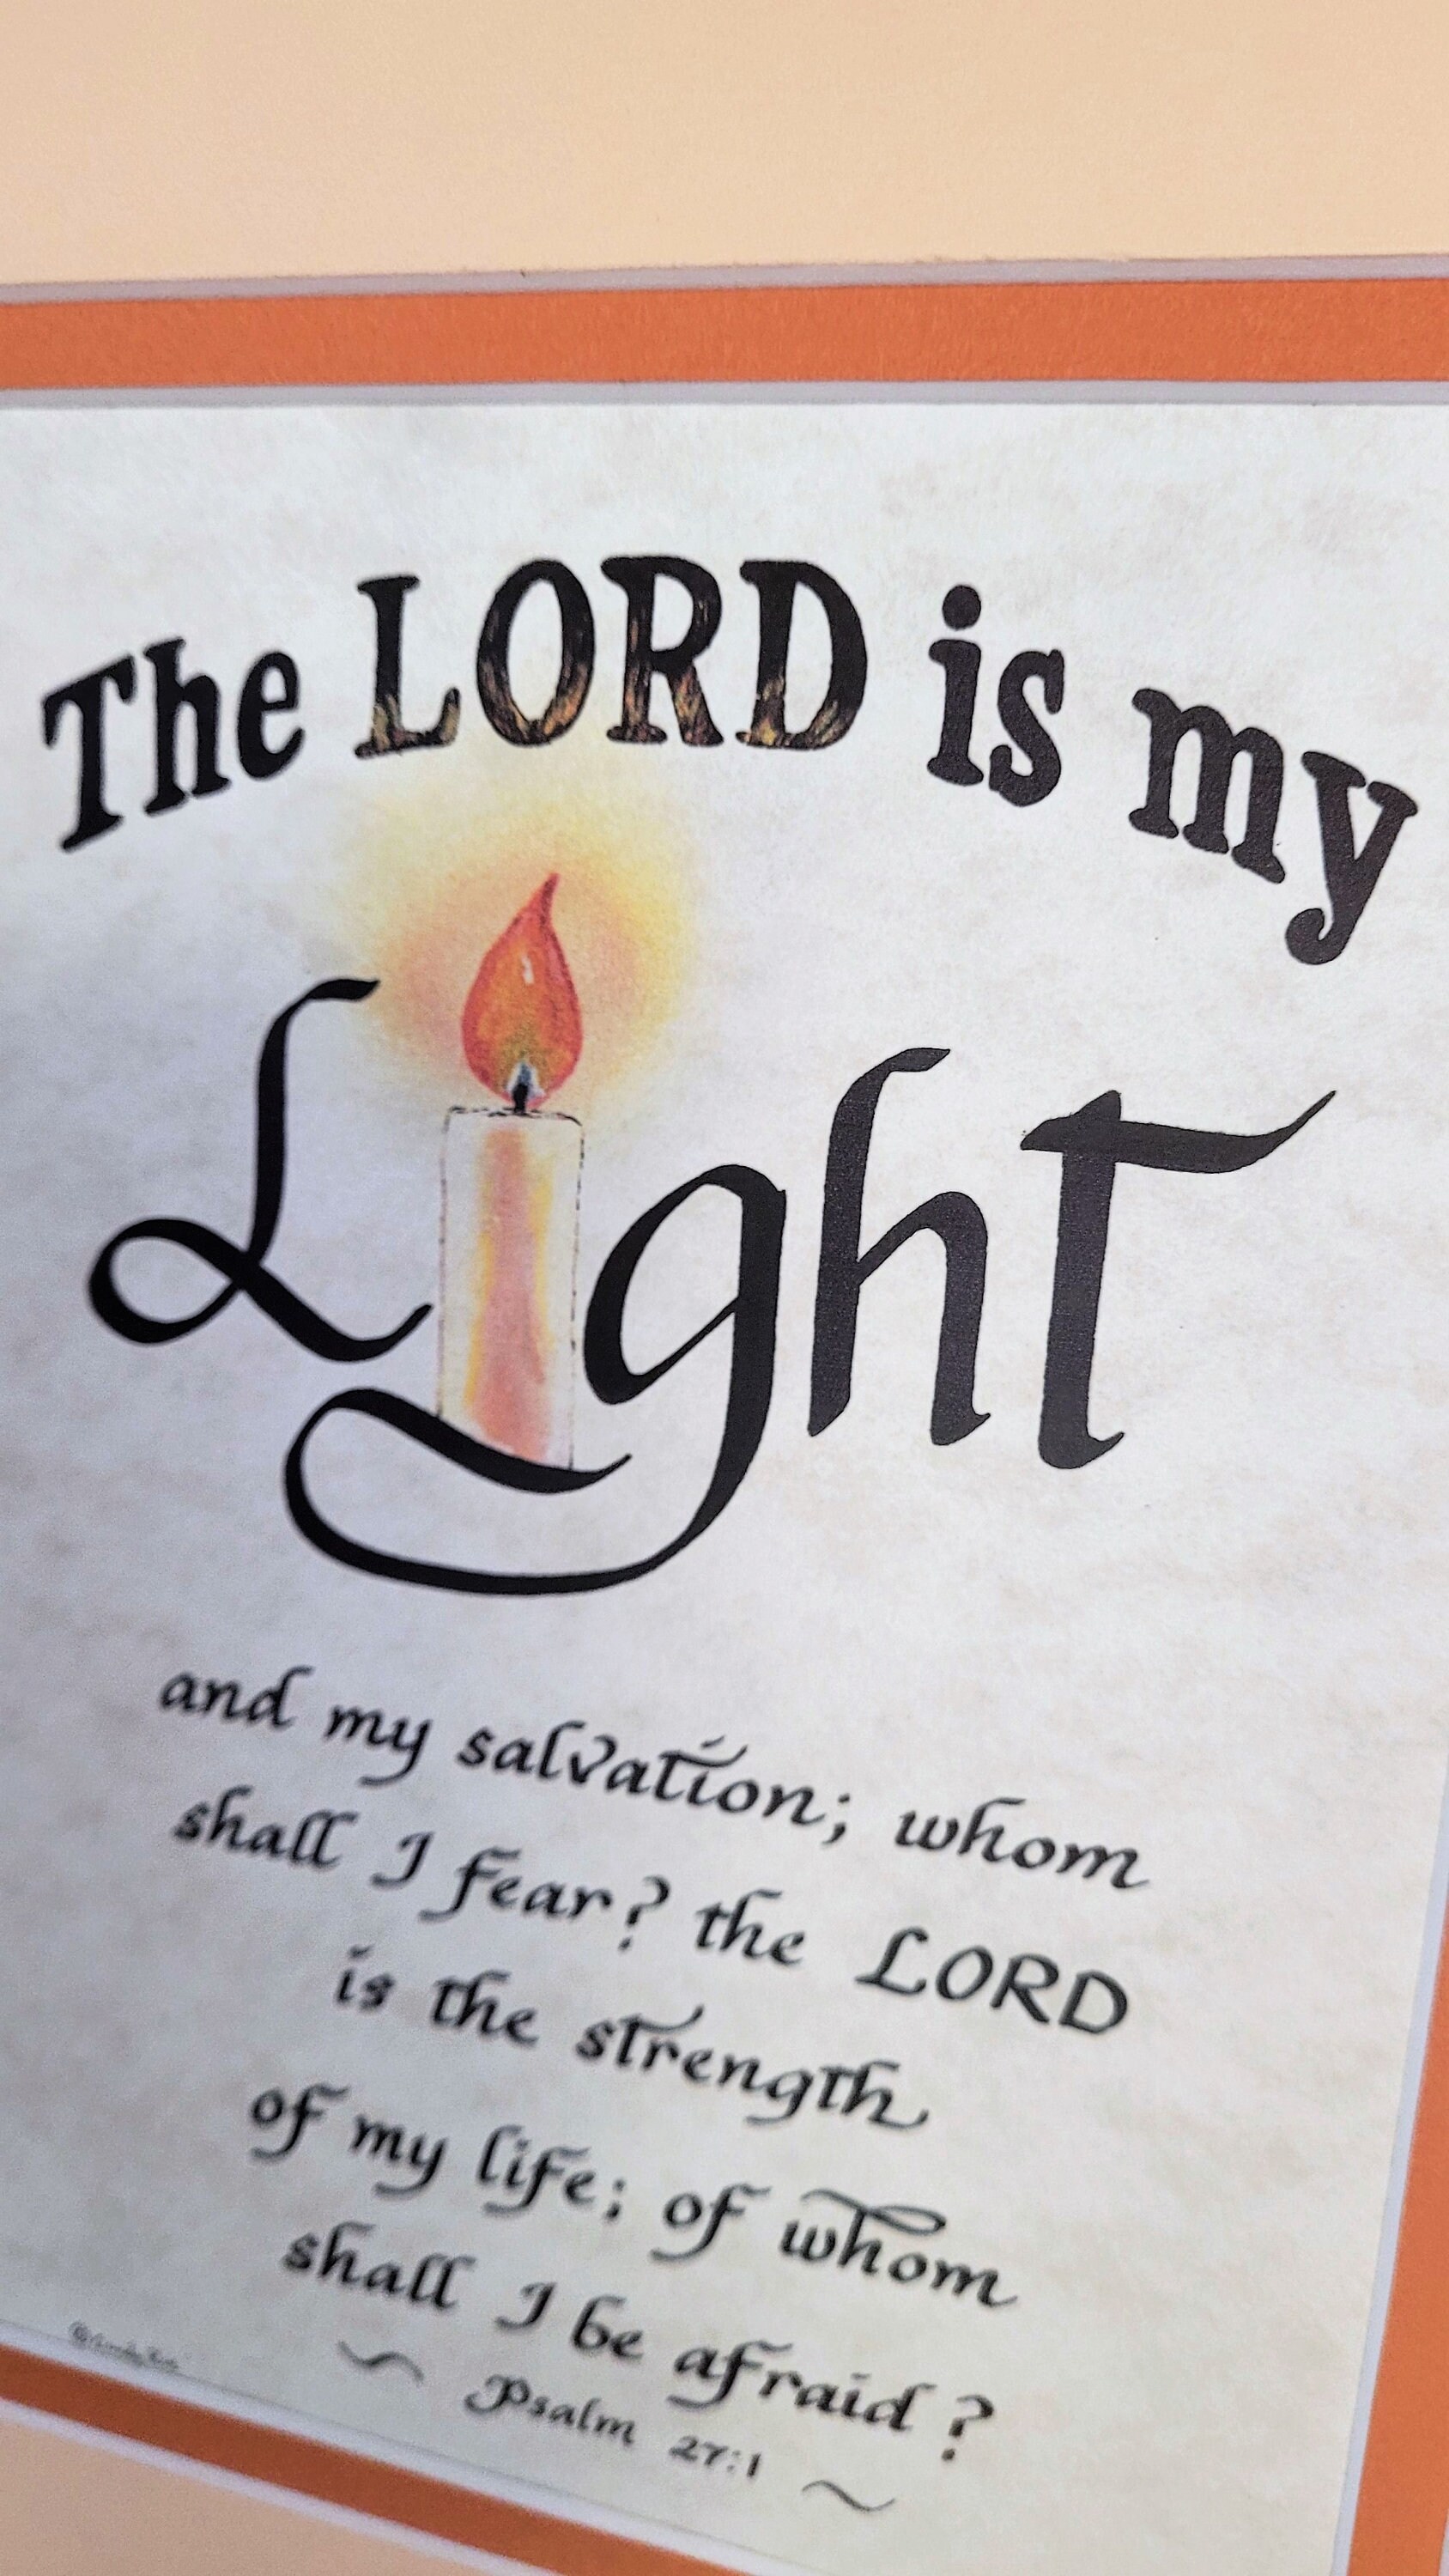 The LORD is my
Light
and my salvation; whom
shall I fear? the LORD
is the strength
of my life; of whom
shall I be afraid?
~ Psalm 27:1 ~